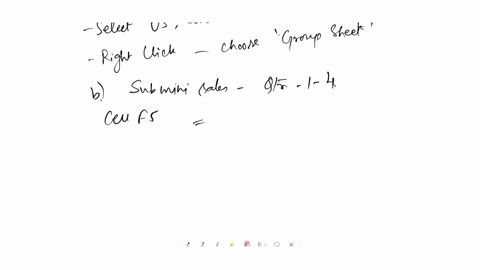 - Select US,
- Right Click - choose 'Group Sheet'
b) Submini sales - Qtr - 1 - 4
Cell F5 =